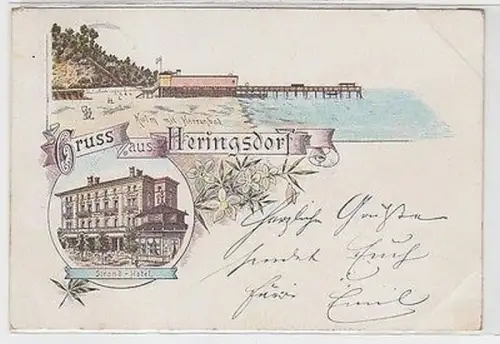 Kulm mit Herrenbad
Gruss aus Heringsdorf
Strand-Hotel.
Herzliche Grüße
sendet Euch
Emil